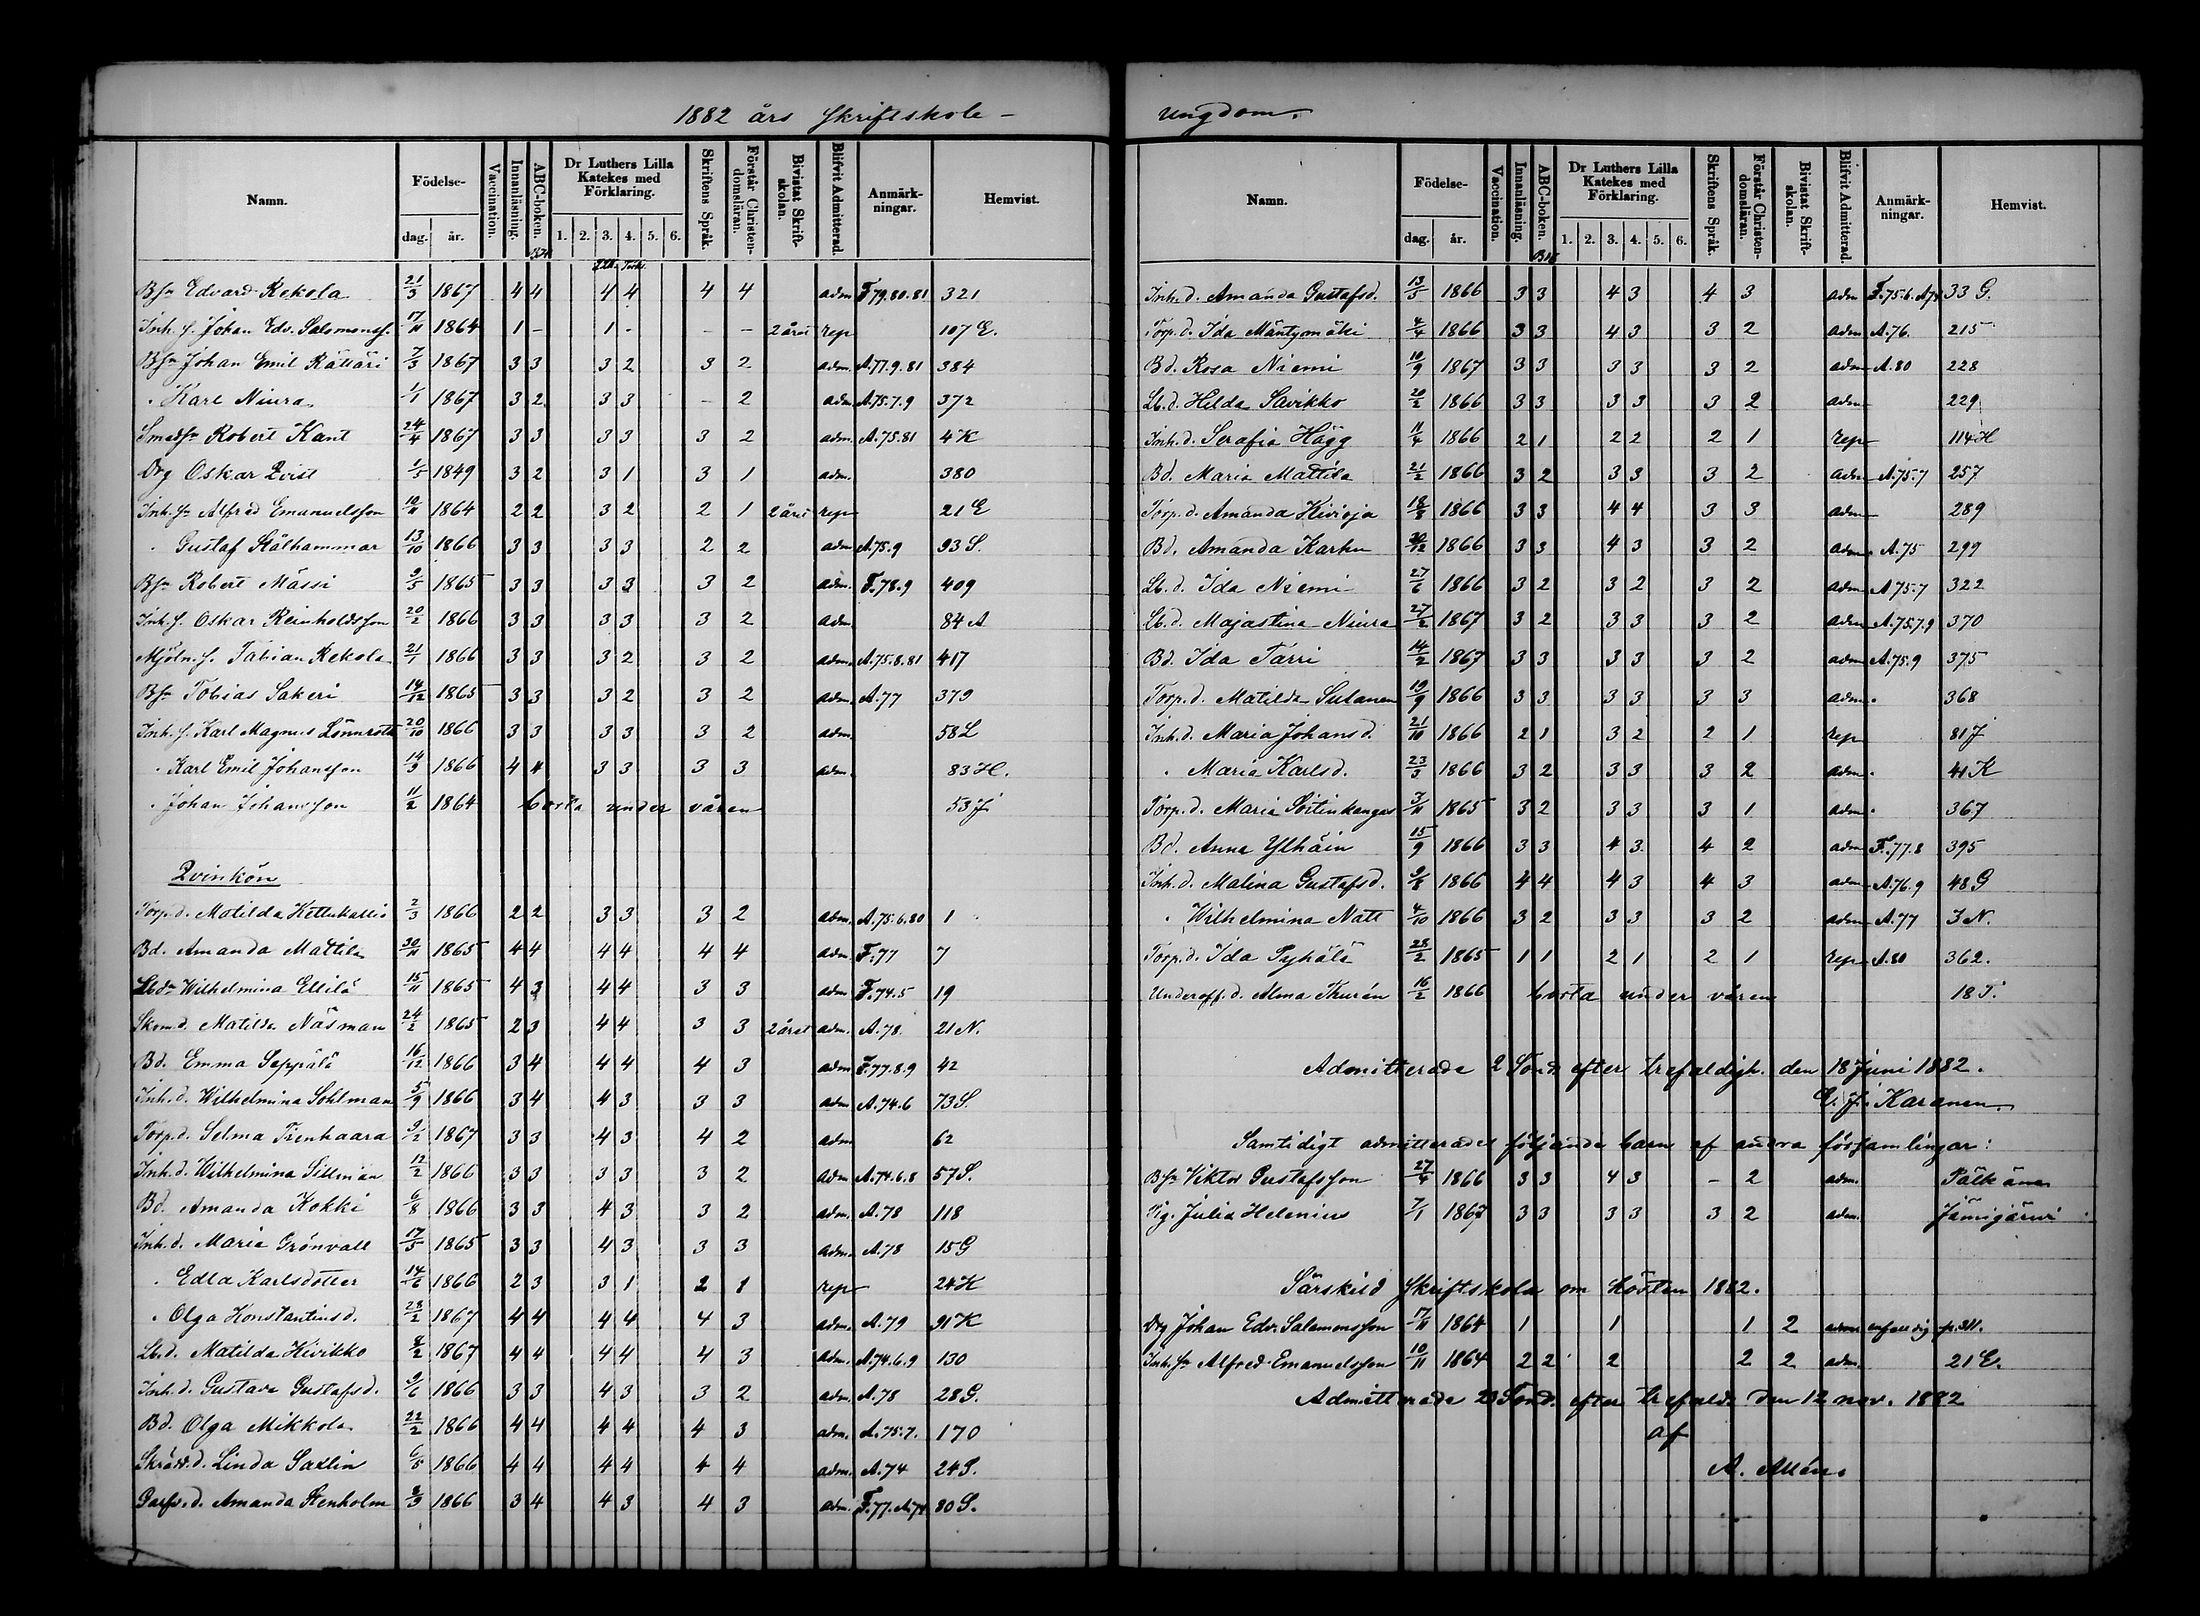 1882 års Skriftskole-
Namn. Födelse- dag. år. Vaccination. Innanläsning. ABC-boken. Dr Luthers Lilla Katekes med Förklaring. 1. 2. 3. 4. 5. 6. Skriftens Språk. Förstår Christendomsläran. Bivistat Skriftskolan. Blifvit Admitterad. Anmärkningar. Hemvist.
Bsn Edvard Rekola 21/3 1867 4 4 4 4 4 4 adm F.79.80.81 321
Inh. s. Johan Edv. Salomonss. 17/11 1864 1 - 1 - - - 2 året rep 107 E.
Bsn Johan Emil Rättäri 7/3 1867 3 3 3 2 3 2 adm. A.77.9.81 384
" Karl Niura 1/1 1867 3 2 3 3 - 2 adm A.75.7.9 372
Smedsn Robert Kant 24/4 1867 3 3 3 3 3 2 adm. A.75.81 4 K
Drg Oskar Qvist 1/5 1849 3 2 3 1 3 1 adm. 380
Inh. sn Alfred Emanuelsson 10/11 1864 2 2 3 2 2 1 2 året rep 21 E
" Gustaf Stålhammar 13/10 1866 3 3 3 3 2 2 adm A.75.9 93 S.
Bsn Robert Mässi 9/5 1865 3 3 3 3 3 2 adm. F.78.9 409
Inh. s. Oskar Reinholdsson 20/2 1866 3 3 3 3 3 2 adm 84 A
Mjöln. s. Fabian Rekola 21/1 1866 3 3 3 2 3 2 adm. A.75.8.81 417
Bsn Tobias Sakeri 14/12 1865 3 3 3 2 3 2 adm. A.77 379
Inh. s. Karl Magnus Lönnroth 20/10 1866 3 3 3 3 3 2 adm. 58 L
" Karl Emil Johansson 14/9 1866 4 4 3 3 3 3 adm. 83 H.
" Johan Johansson 11/2 1864 borta under våren 53 J
Qvinkön
Torp. d. Matilda Kettukallio 2/3 1866 2 2 3 3 3 2 adm. A.75.6.80 1
Bd. Amanda Mattila 30/11 1865 4 4 4 4 4 4 adm F.77 7
Lbdr Wilhelmina Ellilä 15/11 1865 4 3 4 4 3 3 adm F.74.5 19
Skom. d. Matilda Näsman 24/2 1865 2 3 4 4 3 3 2 året adm. A.78. 21 N.
Bd. Emma Seppälä 16/12 1866 3 4 4 4 4 3 adm F.77.8.9 42
Inh. d. Wilhelmina Sohlman 5/9 1866 3 4 4 3 3 3 adm A.74.6 73 S.
Torp. d. Selma Trenhaara 9/2 1867 3 3 4 3 4 2 adm 62
Inh. d. Wilhelmina Sillman 12/2 1866 3 3 3 3 3 2 adm A.74.6.8 57 S.
Bd. Amanda Kokki 6/8 1866 3 3 4 3 3 2 adm. A.78 118
Inh. d. Maria Grönvall 17/5 1865 3 3 4 3 3 3 adm. A.78 15 G
" Edla Karlsdotter 14/6 1866 2 3 3 1 2 1 rep 24 K
" Olga Konstantinsd. 28/2 1867 4 4 4 4 4 3 adm. A.79 91 K
Lb. d. Matilda Kivikko 8/2 1867 4 4 4 4 4 3 adm. A.74.6.9 130
Inh. d. Gustava Gustafsd. 9/6 1866 3 3 4 3 3 2 adm. A.78 28 G.
Bd. Olga Mikkola 22/2 1866 4 4 4 4 4 3 adm. A.75.7. 170
Skrädd. d. Linda Saxlin 6/8 1866 4 4 4 4 4 4 adm. A.74 24 S.
Garfv. d. Amanda Stenholm 8/3 1866 3 4 4 3 4 3 adm. F.77. A.74 80 S.
ungdom.
Namn. Födelse- dag. år. Vaccination. Innanläsning. ABC-boken. Dr Luthers Lilla Katekes med Förklaring. 1. 2. 3. 4. 5. 6. Skriftens Språk. Förstår Christendomsläran. Bivistat Skriftskolan. Blifvit Admitterad. Anmärkningar. Hemvist.
Inh. d. Amanda Gustafsd. 13/5 1866 3 3 4 3 4 3 adm F.75.6. A.78 33 G.
Torp. d. Ida Mäntymäki 4/4 1866 3 3 4 3 3 2 adm A.76. 215
Bd. Rosa Niemi 10/9 1867 3 3 3 3 3 2 adm A.80 228
Lb. d. Hilda Savikko 20/2 1866 3 3 3 3 3 2 adm 229
Inh. d. Serafia Hägg 11/4 1866 2 1 2 2 2 1 rep 114 H
Bd. Maria Mattila 21/2 1866 3 2 3 3 3 2 adm A.75.7 257
Torp. d. Amanda Kivioja 18/8 1866 3 3 4 4 3 3 adm 289
Bd. Amanda Karhu 30/12 1866 3 3 4 3 3 2 adm. A.75 299
Lb. d. Ida Niemi 27/6 1866 3 2 3 2 3 2 adm A.75.7 322
Lb. d. Majastina Niura 27/2 1867 3 2 3 3 3 2 adm A.75.7.9 370
Bd. Ida Tarri 14/2 1867 3 3 3 3 3 2 adm A.75.9 375
Torp. d. Matilda Sulanen 19/9 1866 3 3 3 3 3 3 adm. 368
Inh. d. Maria Johansd. 21/10 1866 2 1 3 2 2 1 rep 81 J
" Maria Karlsd. 23/3 1866 3 2 3 3 3 2 adm. 41 K
Torp. d. Maria Soitinkangas 3/11 1865 3 2 3 3 3 1 adm. 367
Bd. Anna Ylhäin 15/9 1866 3 3 4 3 4 2 adm F.77.8 395
Inh. d. Malina Gustafsd. 9/8 1866 4 4 4 3 4 3 adm A.76.9 48 G
" Wilhelmina Natt 4/10 1866 3 2 3 3 3 2 adm A.77 3 N.
Torp. d. Ida Pyhälä 28/2 1865 1 1 2 1 2 1 rep A.80 362.
Underoff. d. Alma Thurén 16/2 1866 borta under våren 18 T.
Admitterade 2 Sönd efter trefaldigh. den 18 Juni 1882.
Karanen.
Samtidigt admitterades följande barn af andra församlingar:
Bsn Viktor Gustafsson 27/4 1866 3 3 4 3 - 2 adm. Pälkäne
Pig. Julia Helenius 7/1 1867 3 3 3 3 3 2 adm. Jämijärwi
Särskild Skriftskola om hösten 1882.
Drg Johan Edv. Salomonsson 17/11 1864 1 1 1 2 adm enfaldig p. 311.
Inh. sn Alfred Emanuelsson 10/11 1864 2 2 2 2 2 adm. 21 E.
Admitterade 23 Sönd. efter trefald. den 12 nov. 1882
af
A. Allén.